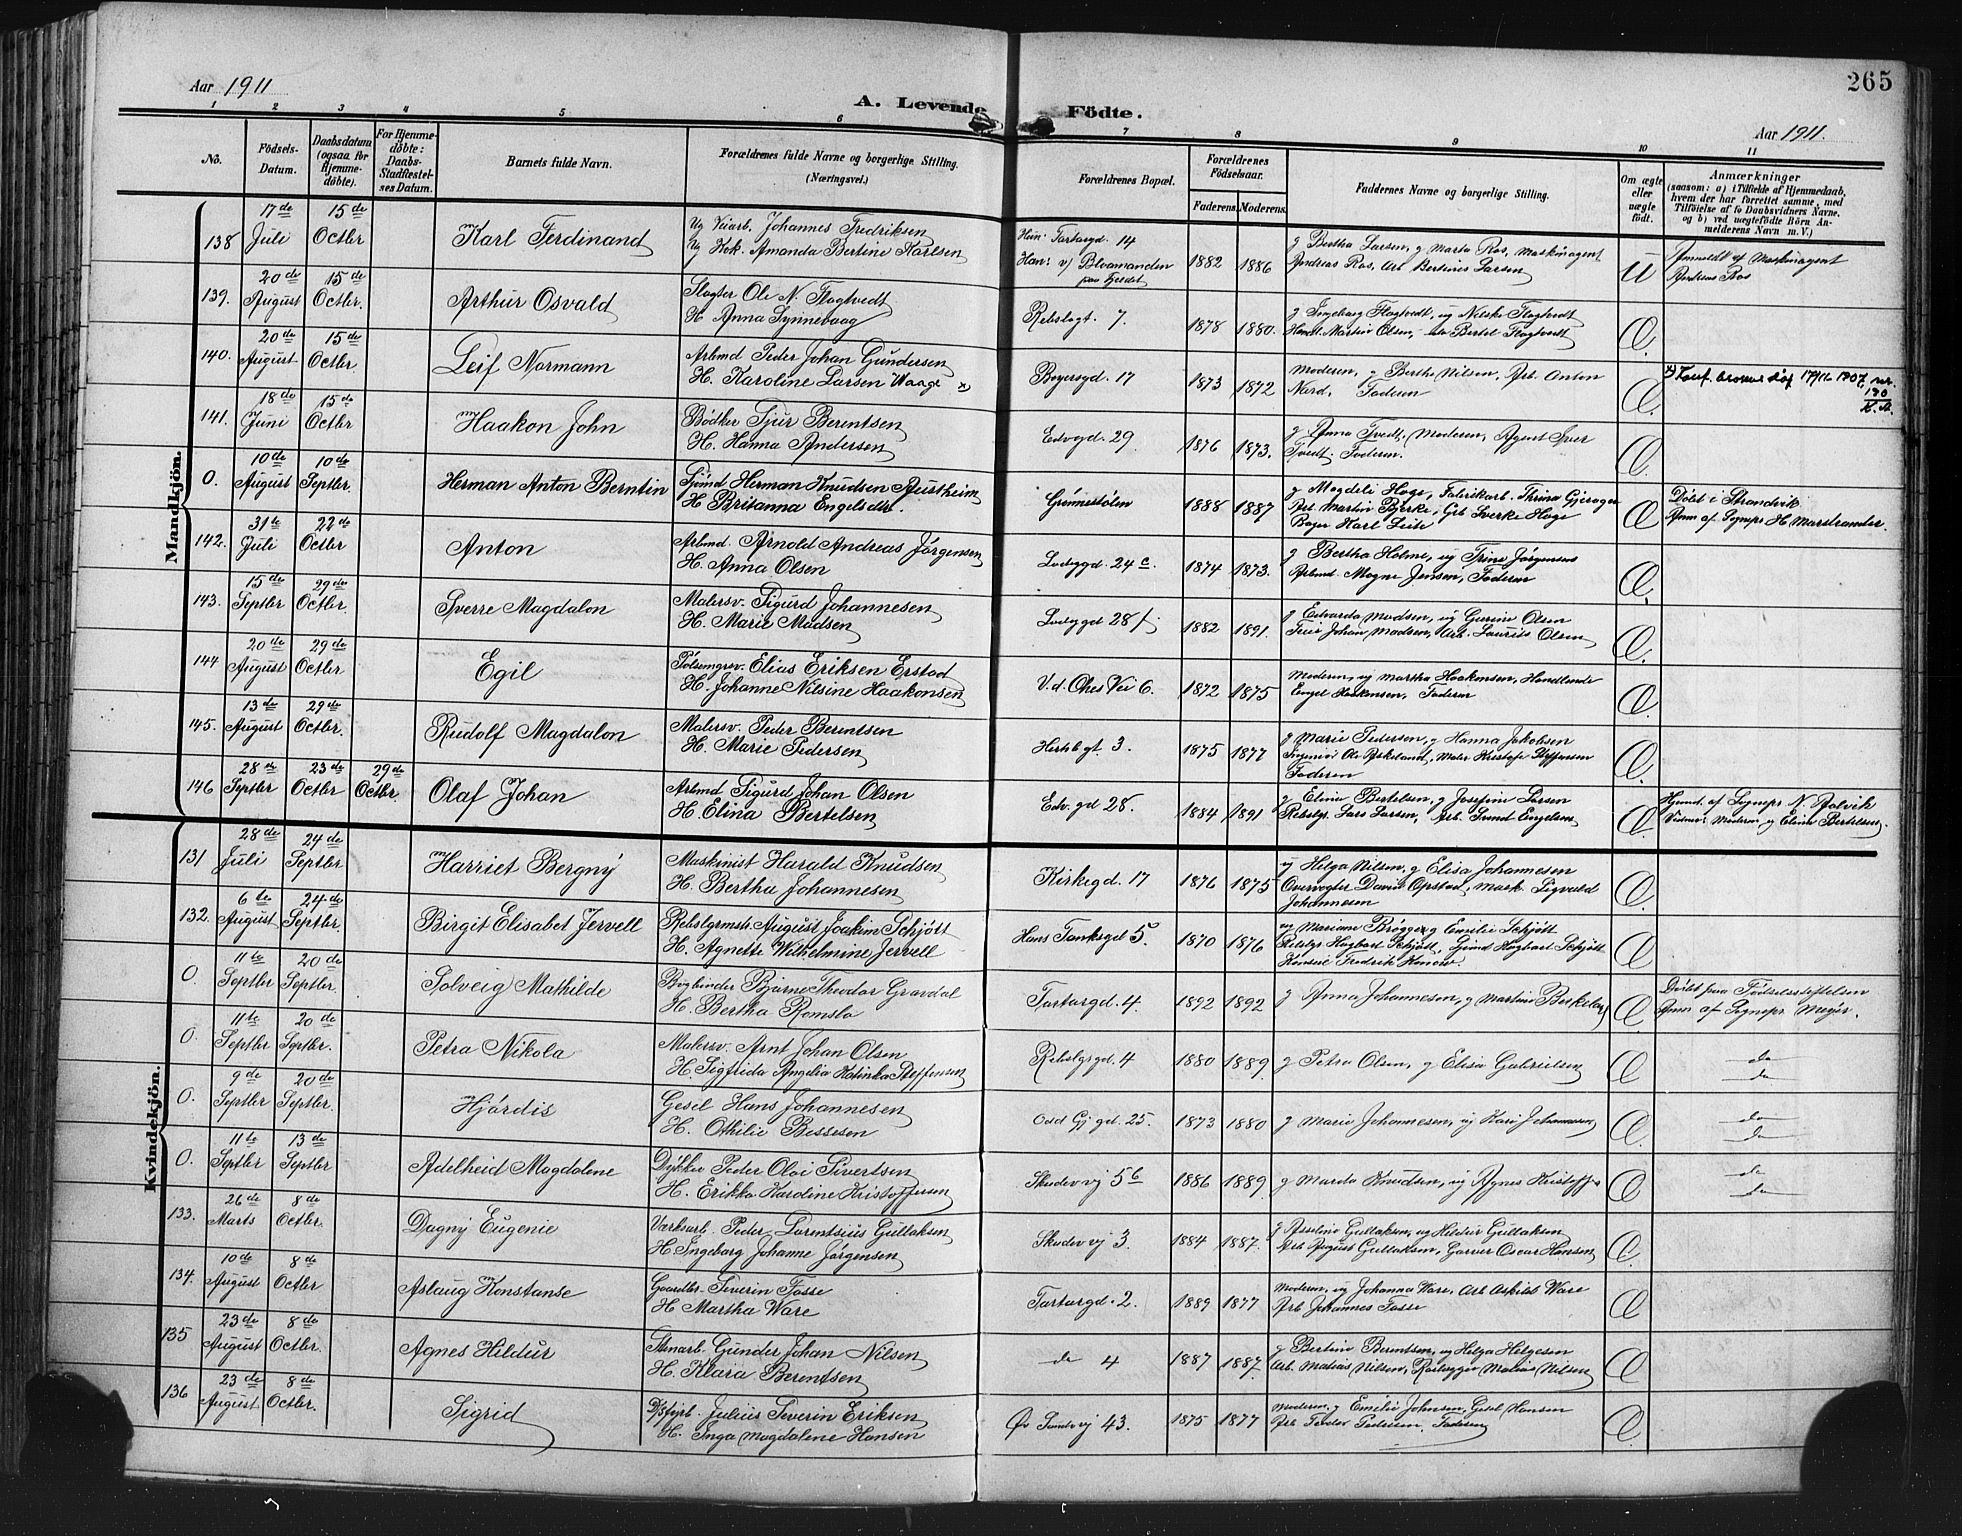 265
Aar 1911
A. Levende Födte.
Aar 1911.
1 2 3 4 5 6 7 8 9 10 11
No.
Födsels-Datum.
Daabsdatum (ogsaa for Hjemmedöbte).
For Hjemmedöbte: Daabs-Stadfæstelses Datum.
Barnets fulde Navn.
Forældrenes fulde Navne og borgerlige Stilling. (Næringsvei.)
Forældrenes Bopæl.
Forældrenes Födselsaar.
Faderens. Moderens.
Faddernes Navne og borgerlige Stilling.
Om ægte eller uægte födt.
Anmærkninger
(saasom: a) i Tilfælde af Hjemmedaab, hvem der har forrettet samme, med Tilföielse af to Daabsvidners Navne, og b) ved uægtefödte Börn Anmelderens Navn m. V.)
Mandkjön.
138 17de Juli 15de Octbr Karl Ferdinand
Ug Veiarb. Johannes Fredriksen
Ug Hek. Amanda Bertine Karlsen
Hun: Tartargd. 14
Han: v/ Blaamanden paa Fjeldet
1882 1886
g Bertha Larsen, g Marta Ros, Maskinagent
Andreas Ros, Arb Bertines Larsen
U
Anmeldt af Maskinagent
Andreas Ros
139. 20de August 15de Octbr. Arthur Osvald
Slagter Ole N. Flogtvedt
H Anna Synnevaag
Rebslagt. 7. 1878 1880.
g Ingeborg Flogtvedt, ug Nilsine Flogtvedt
Handl. Martin Olsen, do Bertel Flogtvedt
140. 20de August 15de Octbr Leif Normann
Arbmd Peder Johan Gundersen
H. Karoline Larsen Waage x)
Beyersgd. 17 1873 1872
Moderen, g Berthe Nilsen, Arb. Anton
Nord, Faderen
141. 18de Juni 15de Octbr Haakon John
Bödker Sjur Berentsen
H. Hanna Andersen
Edvgd. 29 1876 1873.
g Anna Tvedt, Moderen, Agent Iver
Tvedt, Faderen.
0. 10de August 10de Septbr. Herman Anton Berntin
Sjömd Herman Knudsen Austheim
H Britanna Engelsdtr.
Grönnestölen 1888 1887
Arb. Martin Bjerke, Grb Sverke Hage
Bager Karl Leite
Döbt i Strandvik
Anm af Sognepr H. Marstrander.
142. 31te Juli 22de Octbr Anton
Arbmd. Arnold Andreas Jörgensen
H. Anna Olsen
Ladeggd. 24c. 1874 1873.
g Bertha Holme, ug Trine Jörgensen
Arbmd. Mogne Jensen, Faderen
143. 15de Septbr 29de Octbr. Sverre Magdalon
Malersv. Sigurd Johannesen
H. Marie Madsen
Ladeggd 28f. 1882 1891.
g Edvarda Madsen, ug Gurine Olsen
Feier Johan Madsen, Arb. Laurits Olsen
144 20de August 29de Octbr Egil
Pölsemgrsv. Elias Eriksen Erstad
H. Johanne Nilsine Haakonsen
V. d. Ohes Vei 6. 1872 1875
Moderen, ug Martha Haakonsen, Handlende
Engel Haakonsen, Faderen
145. 13de August 29de Octbr. Rudolf Magdalon
Malersv. Peder Berentsen
H. Marie Pedersen
3. 1875 1877
g Marie Pedersen, g Hanna Jakobsen
Ingeniör Ole Askeland, Maler Kristofer Steffensen
Faderen
146 28de Septbr 23de Octbr 29de Octbr. Olaf Johan
Arbmd Sigurd Johan Olsen
H. Elina Bertelsen
Edv. gd 28. 1884 1891
g Elina Bertelsen, g Josefine Larsen
Rebslgr. Lars Larsen, Arb. Svend Engelsen
Hjemd. af Sognepr N. Rolvik
Vidner: Moderen, g Eline Bertelsen.
Kvindekjön.
131 28de Juli 24de Septbr Harriet Bergny
Maskinist Harald Knudsen
H. Bertha Johannesen
Kirkegd. 17 1876 1875
ug Helga Nilsen, g Elisa Johannesen
Overvogter David Opstad, Mask. Sigvald
Johannesen
132. 6te August 24de Septbr. Birgit Elisabet Jervell
Rebslgrmstr. August Joakim Schjött
H. Agnette Wilhelmine Jervell
Hans Tanksgd 5. 1870 1876
ug Mariane Brögger, g Emilie Schjött
Rebslgr Hagbart Schjött, Sjömd Hagbart Schjött
Konsul Fredrik Konow
0 11te Septbr 20de Septbr. Solveig Mathilde
Bogbinder Bjarne Theodor Gravdal
H. Bertha Romslo
Tartargd. 4. 1892 1892
g Anna Johannesen, g Martine Birkeland
Anm af Sognepr Meyer.
0. 11te Septbr 20de Sptbr. Petra Nikola
Malersv. Arnt Johan Olsen
H. Sigfrida Angelia Katinka Steffensen
Rebslgsgd. 4 1880 1889
g Petra Olsen, g Elisa Gabrielsen
do
do
0. 9de Septbr 20de Septbr. Hjördis
Gesel Hans Johannesen
H. Othilie Bessesen
Odd Gj gd. 25. 1873 1880
g Marie Johannesen, ug Kari Johannesen
do
do
0. 11te Septbr 13de Septbr Adelheid Magdalene
Dykker Peder Olai Sivertsen
H. Erikka Karoline Kristoffersen
Skudevvj 5b 1886 1889
g Marda Knudsen, ug Agnes Kristoffs
do
do
133. 26de Marts 8de Octbr. Dagny Eugenie
Værksarb. Peder Lorentsius Gullaksen
H. Ingeborg Johanne Jörgensen
Skudevvj 3. 1884 1887.
g Asseline Gullaksen, ug Hildur Gullaksen
Arb August Gullaksen, Garver Oscar Hansen
134. 10de August 8de Octbr Aslaug Konstanse
Gaardbr. Severin Fosse
H Martha Ware
Tartargd. 2. 1889 1877
Moderen, ug Johanna Ware, Arb Askild Ware
Arb Johannes Fosse
135 23de August 8de Octbr. Agnes Hildur
Stenarb. Gunder Johan Nilsen
H. Klara Berentsen
do 4 1887 1887.
g Bertine Berentsen, ug Helga Helgesen
Arb. Matias Nilsen, Nilsen
136 23de August 8de Octbr. Sigrid
Dpsfyrb. Julius Severin Eriksen
H. Inga Magdalene Hansen
Öv. Sandvvj 43. 1875 1877
Moderen, g Emilie Johnsen, Gesel Hansen
Arb Teodor Pedersen, Faderen